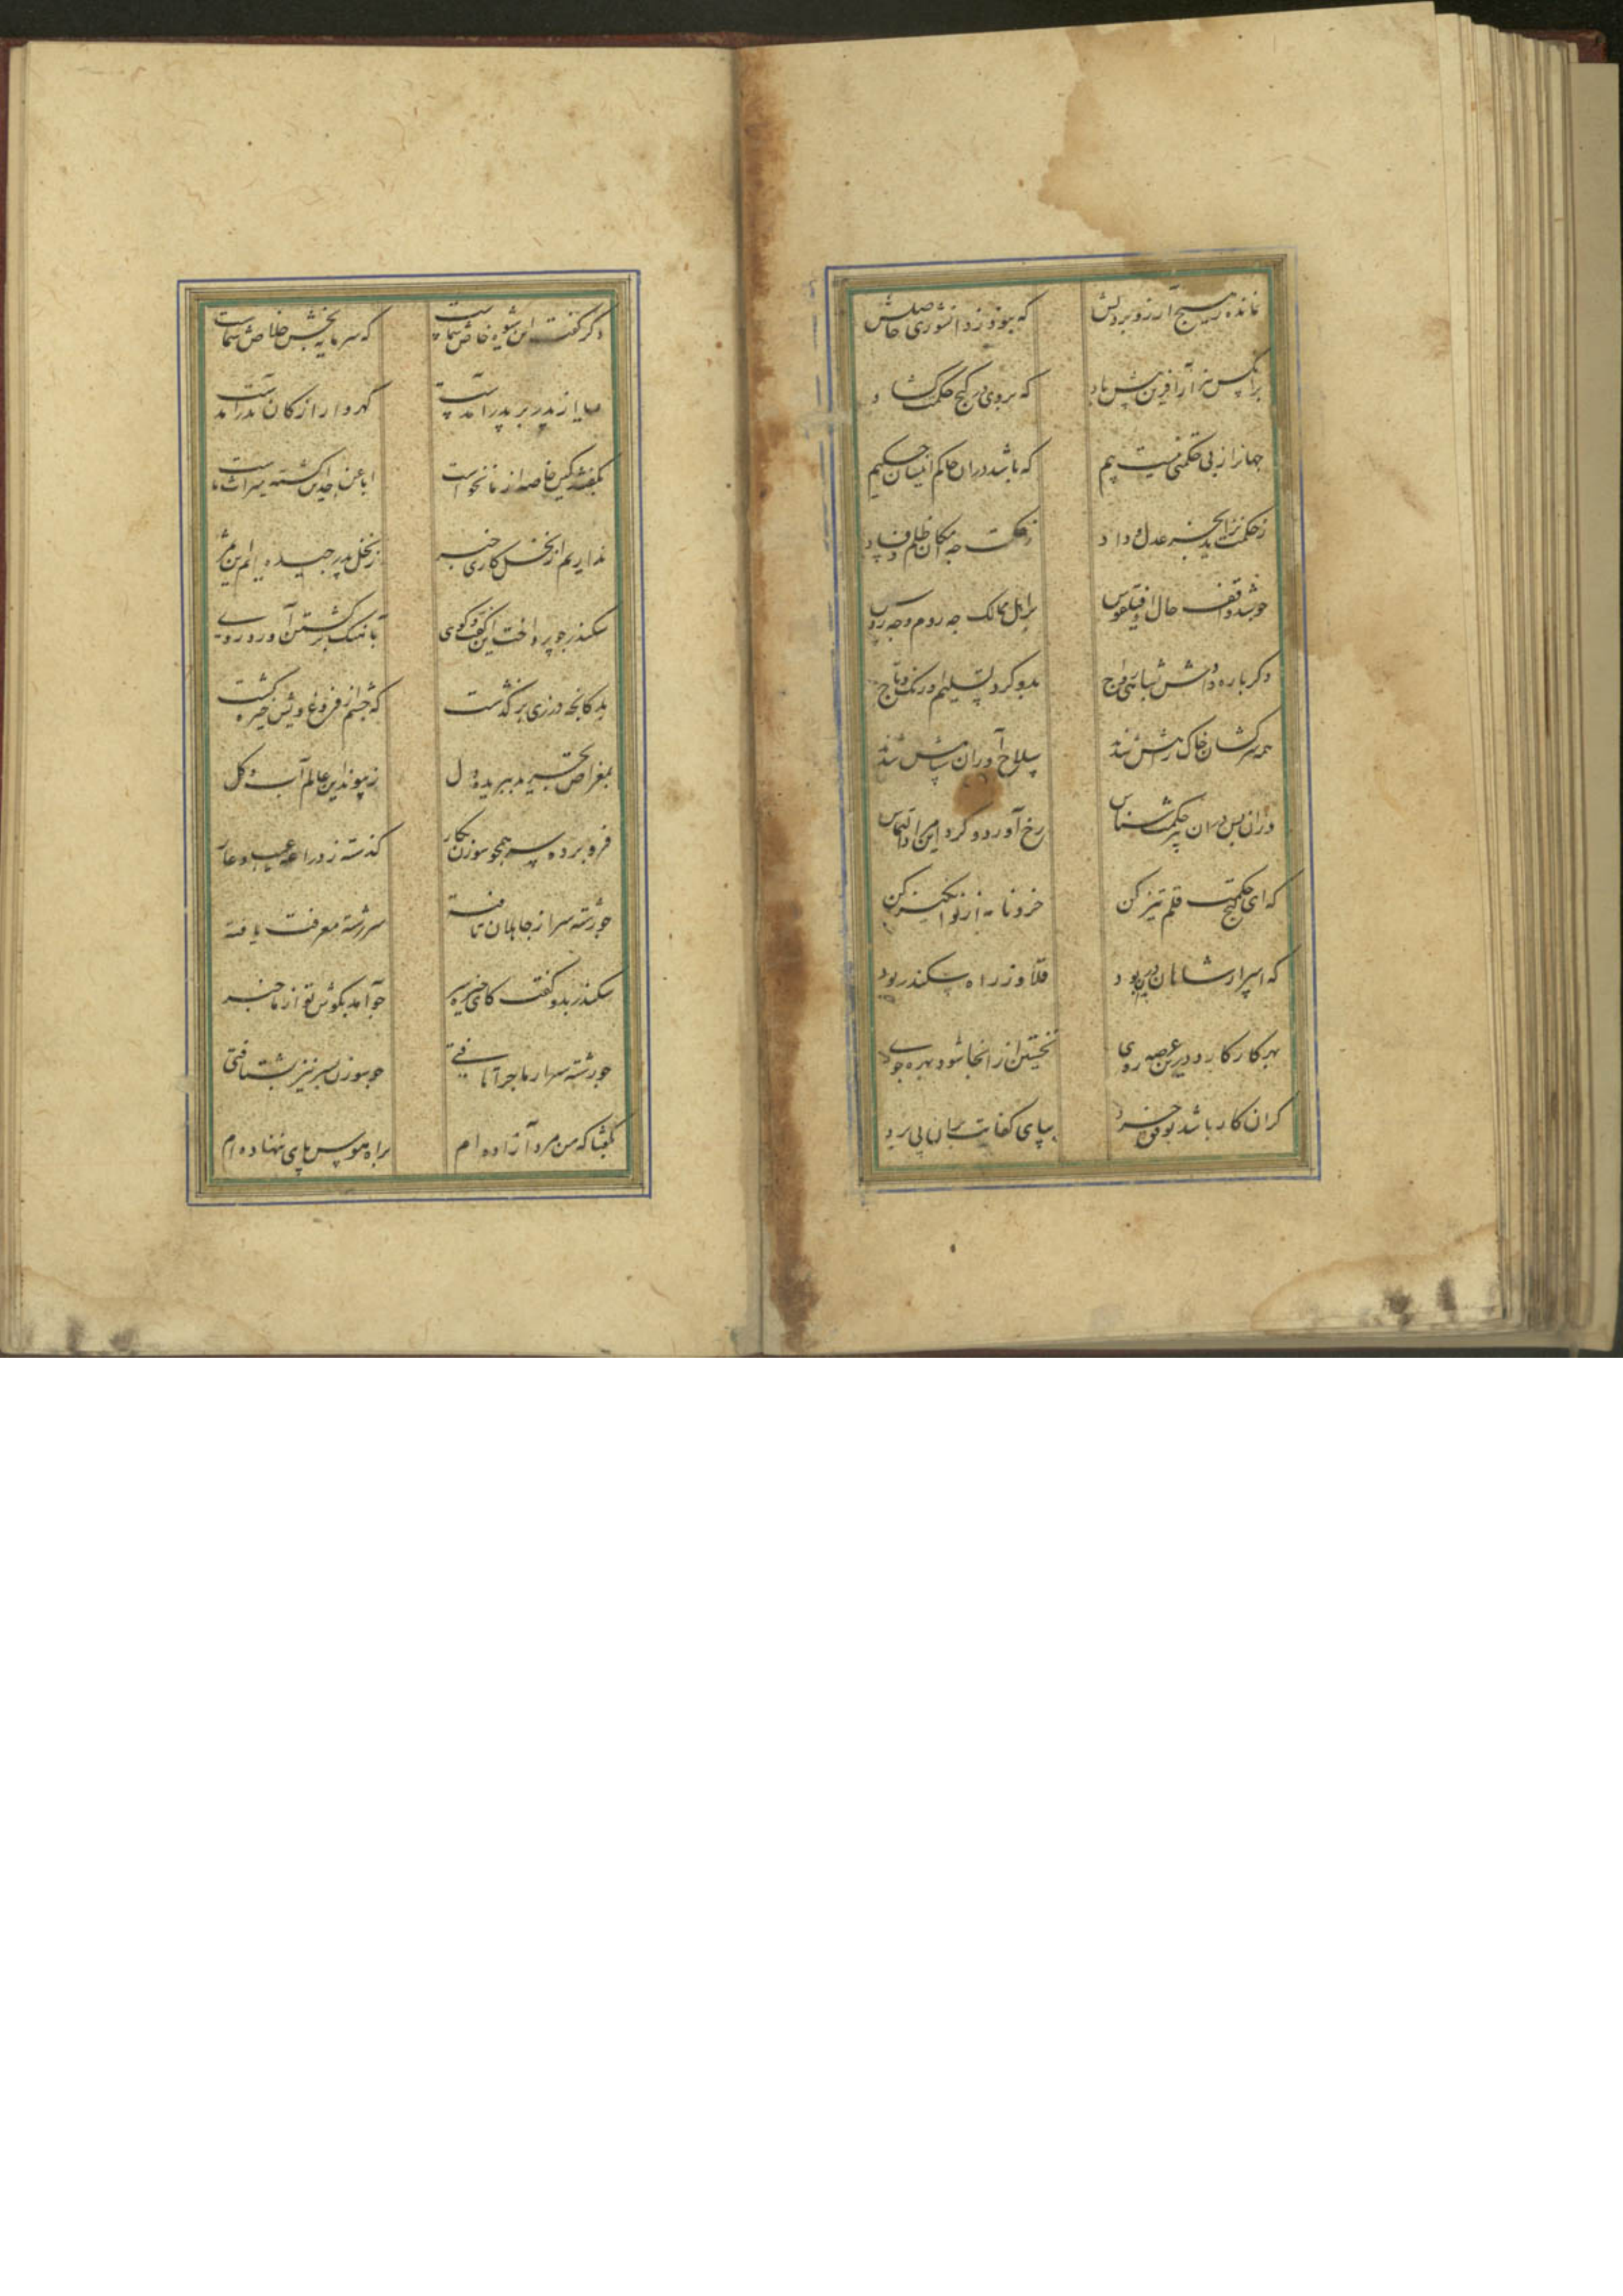 نمانده ز هیچ آرزو بر دلش که نبود ز دانشوری حاصلش
بر آنکس هزار آفرین بیش باد که بر وی در گنج حکمت گشاد
جهانرا ز بی حکمتی نیست بیم که باشد دران حاکم انسان حکیم
ز حکمت نزاید بجز عدل و داد ز حکمت چه امکان ظلم و فساد
چو شد واقف حال او فیلقوس بر اهل ممالک چه روم و چه روس
دگر باره دادش رواج بدو کرد تسلیم اورنک و تاج
همه سرکشان خاک راهش شدند سلاح آوران سپاهش شدند
وزان پس دران پیر حکمت شناس رخ آورد و کرد این التماس
که ای گنج حکمت قلم تیز کن خردنامه از نو انگیز کن
که اسرار شاهان درین بود قلاوز راه سکندر بود
بهر کار کارد درین عرصه روی نخستین از آنجا شود بهره جوی
گر آن کار باشد بوفق خرد بپای کفایت بران پی برد
دگر گفت این شیوه خاص شماست که سرمایه بخش خلاص شماست
بما از پدر بر پدر آمدست گهروار از کان بدر آمدست
بگفتند کین خاصه از ما نخواست ابا عن جد این گشته میراث ماست
نداریم از نخل کاری خبر ز نخل پدر چیده ایم این ثمر
سکندر چو پرداخت این گفت و گوی بآهنگ برگشتن آورد روی
بدکانچه درزی برگذشت که چشم از فروغ ویش خیره گشت
بمقراض تجرید ببریده دل ز پیوند این عالم آب و گل
فرو برده سر همچو سوزن بکار گذشته ز دراعه عیب و عار
چو رشته سر از جاهلان تافته سر رشته معرفت یافته
سکندر بدو گفت کای خیره سر چو آمد بگوش تو از ما خبر
چو رشته سر از ماجرا تافتی چو سوزن بسر نیز نشتافتی
بگفتا که من مرد آزاده ام براه هوس پای ننهاده ام